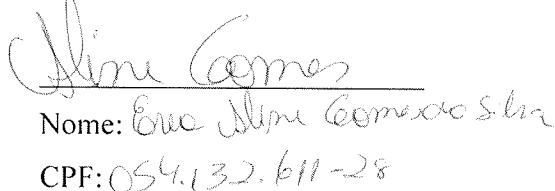 Aline Gomes
Nome: Erica Aline Gomes da Silva
CPF: 054.132.611-28